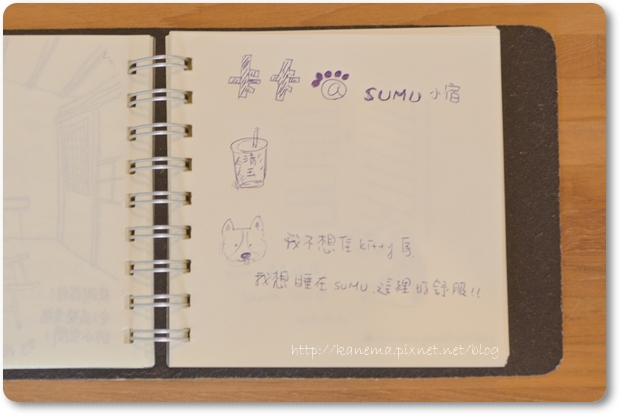 卡卡 @ SUMU 小宿
澎玉
我不想住kitty房
我想睡在SUMU,這裡好舒服!!
http://kanema.pixnet.net/blog